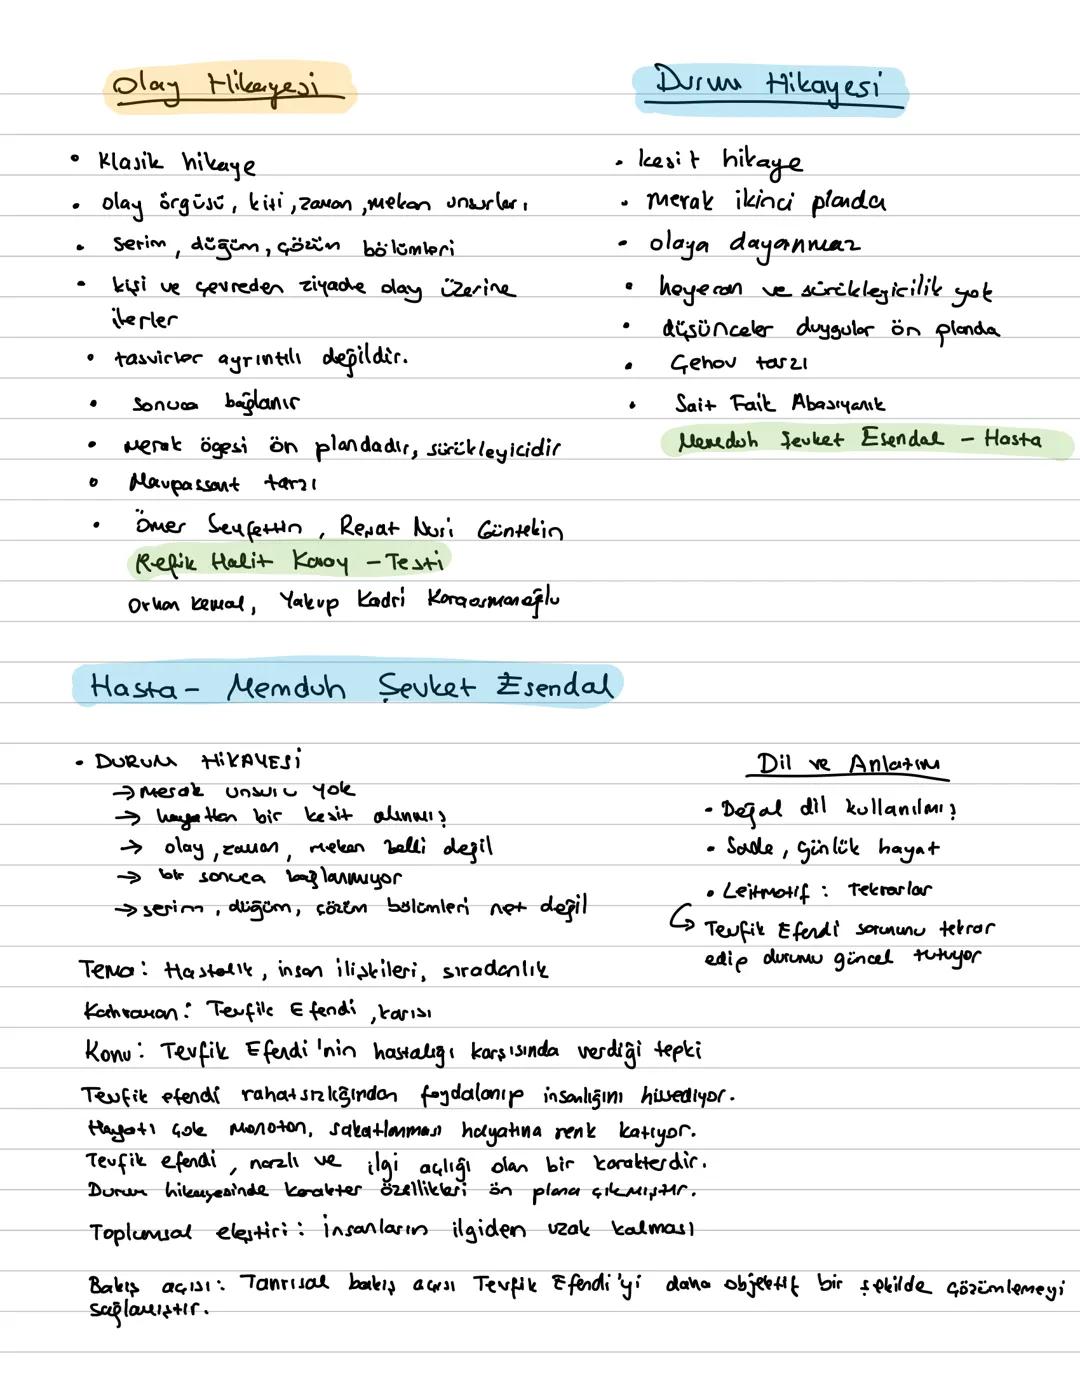 Olay Hikayesi
• Klasik hikaye
• olay örgüsü, kişi, zaman, mekan unsurları
• Serim, düğüm, çözüm bölümleri
• kişi ve çevreden ziyade olay üzerine
ilerler
• tasvirler ayrıntılı değildir.
• Sonuca bağlanır
• Merak ögesi ön plandadır, sürükleyicidir
• Maupassant tarzı
• Ömer Seyfettin, Reşat Nuri Güntekin
Refik Halit Karay - Testi
Orhan Kemal, Yakup Kadri Karaosmanoğlu
Durum Hikayesi
• kesit hikaye
• merak ikinci planda
• olaya dayanmaz
• heyecan ve sürükleyicilik yok
• düşünceler duygular ön planda
• Çehov tarzı
• Sait Faik Abasıyanık
Memduh Şevket Esendal - Hasta
Hasta - Memduh Şevket Esendal
• DURUM HİKAYESİ
→ Merak unsuru yok
→ hayattan bir kesit alınmış
→ olay, zaman, mekan belli değil
→ bir sonuca bağlanmıyor
→ serim, düğüm, çözüm bölümleri net değil
Dil ve Anlatım
• Doğal dil kullanılmış
• Sade, günlük hayat
• Leitmotif: Tekrarlar
Tevfik Efendi sorununu tekrar
edip durumu güncel tutuyor
Tema: Hastalık, insan ilişkileri, sıradanlık
Kahraman: Tevfik Efendi, karısı
Konu: Tevfik Efendi'nin hastalığı karşısında verdiği tepki
Tevfik efendi rahatsızlığından faydalanıp insanlığını hissediyor.
Hayatı çok monoton, sakatlanması hayatına renk katıyor.
Tevfik efendi, nazlı ve ilgi açlığı olan bir karakterdir.
Durum hikayesinde karakter özellikleri ön plana çıkmıştır.
Toplumsal eleştiri: insanların ilgiden uzak kalması
Bakış açısı: Tanrısal bakış açısı Tevfik Efendi'yi daha objektif bir şekilde çözümlemeyi
sağlamıştır.